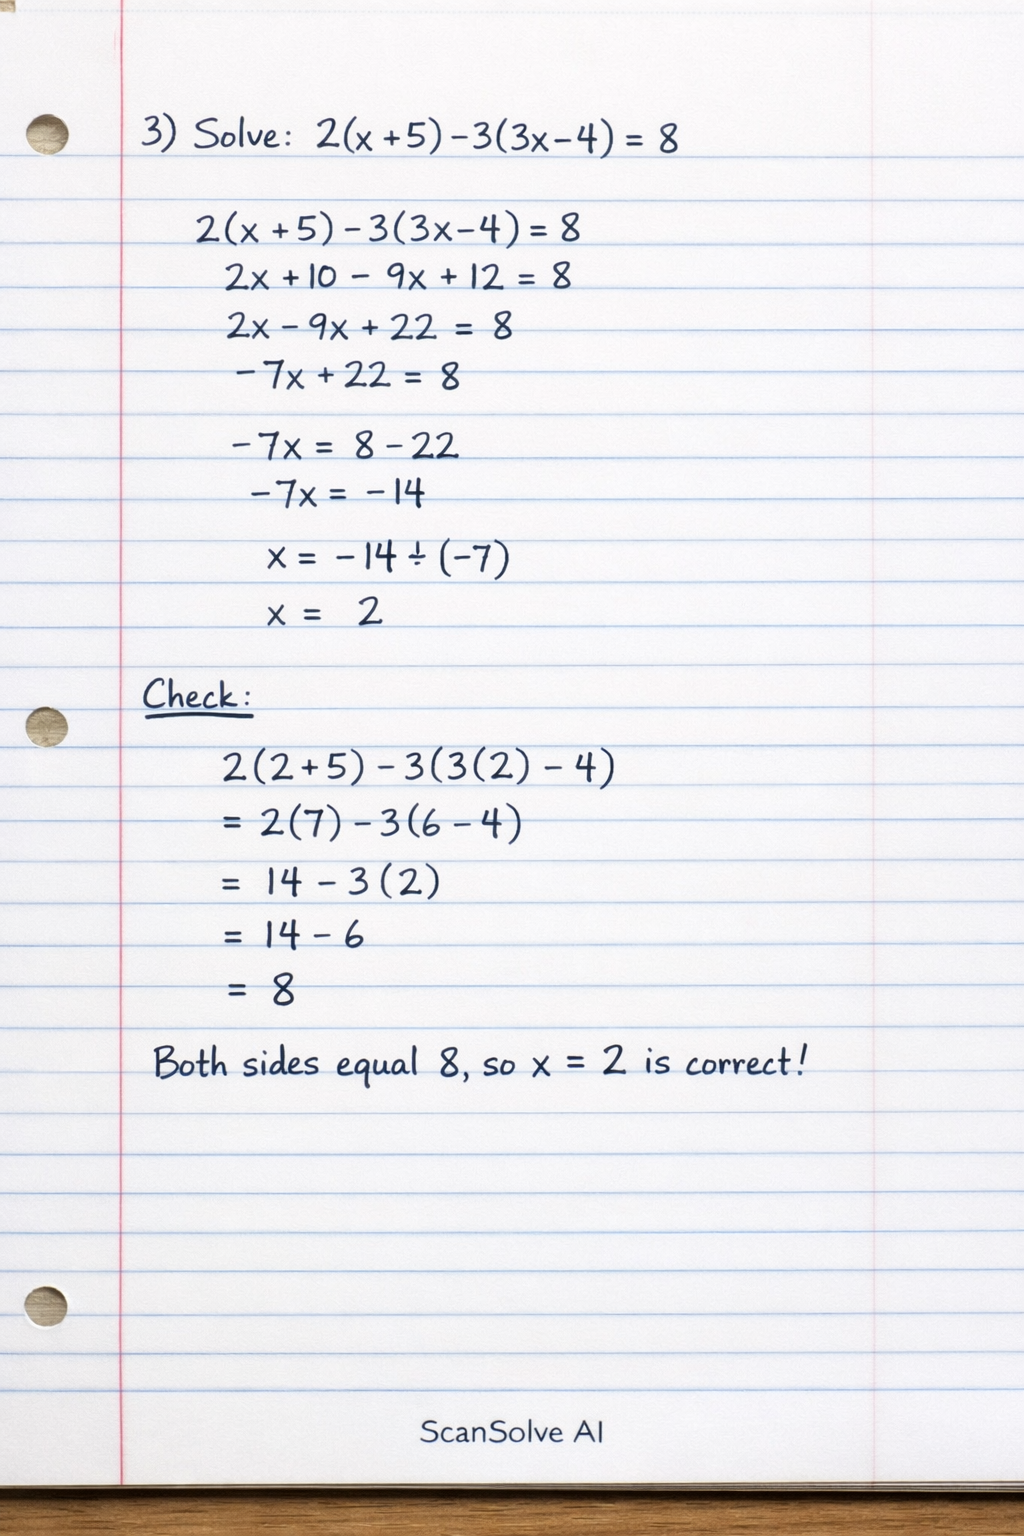 3) Solve: 2(x+5)-3(3x-4) = 8
2(x+5)-3(3x-4) = 8
2x + 10 - 9x + 12 = 8
2x - 9x + 22 = 8
-7x + 22 = 8
-7x = 8 - 22
-7x = -14
x = -14 ÷ (-7)
x = 2
Check:
2(2+5) - 3(3(2) - 4)
= 2(7) - 3(6 - 4)
= 14 - 3(2)
= 14 - 6
= 8
Both sides equal 8, so x = 2 is correct!
ScanSolve AI